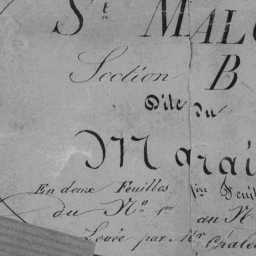 St MALO
Section B
Dite du
Marai
En deux Feuilles, 1ère Feuil
du No 1er au N
Levée par Mr